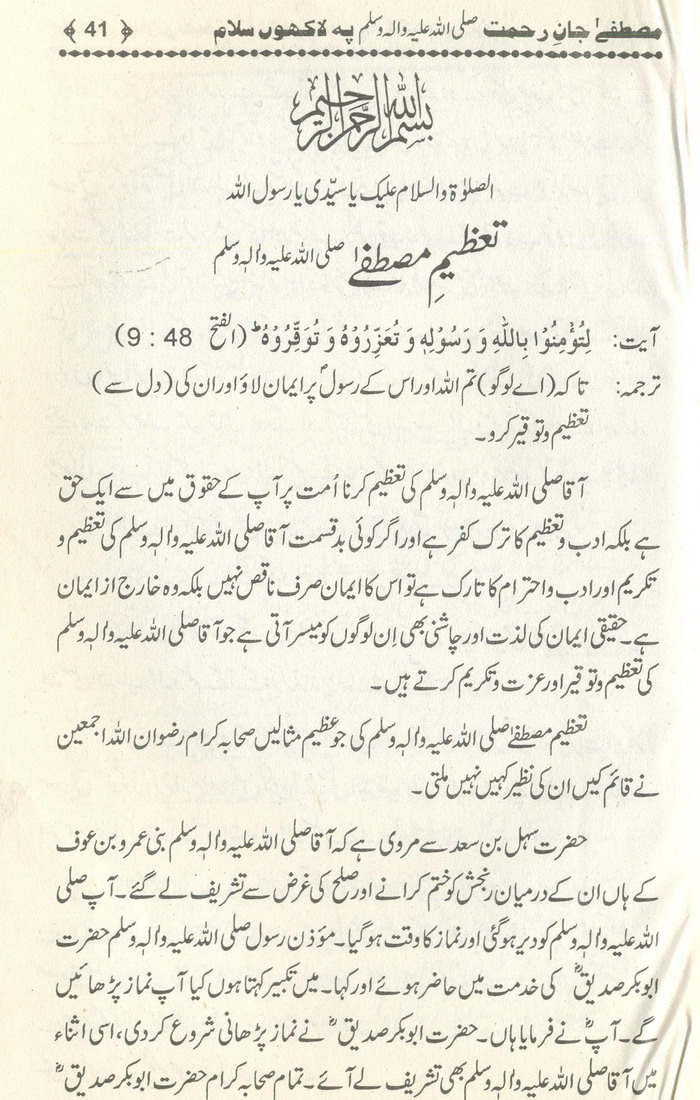 مصطفےٰ جانِ رحمت صلی اللہ علیہ والہٖ وسلم پہ لاکھوں سلام ﴿ 41 ﴾
بسم اللہ الرحمن الرحیم
الصلوٰۃ والسلام علیک یا سیّدی یا رسول اللہ
تعظیمِ مصطفےٰ صلی اللہ علیہ والہٖ وسلم
آیت: لِتُؤْمِنُوْا بِاللّٰهِ وَ رَسُوْلِهٖ وَ تُعَزِّرُوْهُ وَ تُوَقِّرُوْهُ ؕ (الفتح 48 : 9)
ترجمہ: تاکہ (اے لوگو) تم اللہ اور اس کے رسولؐ پر ایمان لاؤ اور ان کی (دل سے)
تعظیم و توقیر کرو۔
آقا صلی اللہ علیہ والہٖ وسلم کی تعظیم کرنا اُمت پر آپ کے حقوق میں سے ایک حق
ہے بلکہ ادب و تعظیم کا ترک کفر ہے اور اگر کوئی بدقسمت آقا صلی اللہ علیہ والہٖ وسلم کی تعظیم و
تکریم اور ادب و احترام کا تارک ہے تو اس کا ایمان صرف ناقص نہیں بلکہ وہ خارج از ایمان
ہے۔ حقیقی ایمان کی لذت اور چاشنی بھی اِن لوگوں کو میسر آتی ہے جو آقا صلی اللہ علیہ والہٖ وسلم
کی تعظیم و توقیر اور عزت و تکریم کرتے ہیں۔
تعظیم مصطفےٰ صلی اللہ علیہ والہٖ وسلم کی جو عظیم مثالیں صحابہ کرام رضوان اللہ اجمعین
نے قائم کیں ان کی نظیر کہیں نہیں ملتی۔
حضرت سہل بن سعد سے مروی ہے کہ آقا صلی اللہ علیہ والہٖ وسلم بنی عمرو بن عوف
کے ہاں ان کے درمیان رنجش کو ختم کرانے اور صلح کی غرض سے تشریف لے گئے۔ آپ صلی
اللہ علیہ والہٖ وسلم کو دیر ہو گئی اور نماز کا وقت ہو گیا۔ مؤذن رسول صلی اللہ علیہ والہٖ وسلم حضرت
ابوبکر صدیقؓ کی خدمت میں حاضر ہوئے اور کہا۔ میں تکبیر کہتا ہوں کیا آپ نماز پڑھائیں
گے۔ آپؓ نے فرمایا ہاں۔ حضرت ابوبکر صدیقؓ نے نماز پڑھانی شروع کر دی، اسی اثناء
میں آقا صلی اللہ علیہ والہٖ وسلم بھی تشریف لے آئے۔ تمام صحابہ کرام حضرت ابوبکر صدیقؓ